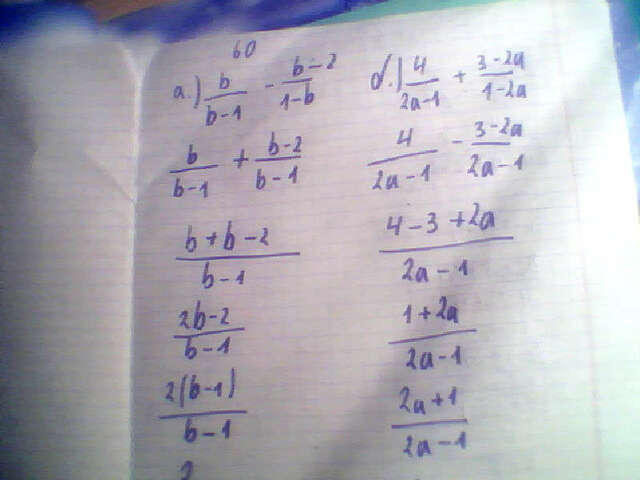 60
а.) b/(b-1) - (b-2)/(1-b)
b/(b-1) + (b-2)/(b-1)
(b+b-2)/(b-1)
(2b-2)/(b-1)
2(b-1)/(b-1)
2
d.) 4/(2a-1) + (3-2a)/(1-2a)
4/(2a-1) - (3-2a)/(2a-1)
(4-3+2a)/(2a-1)
(1+2a)/(2a-1)
(2a+1)/(2a-1)